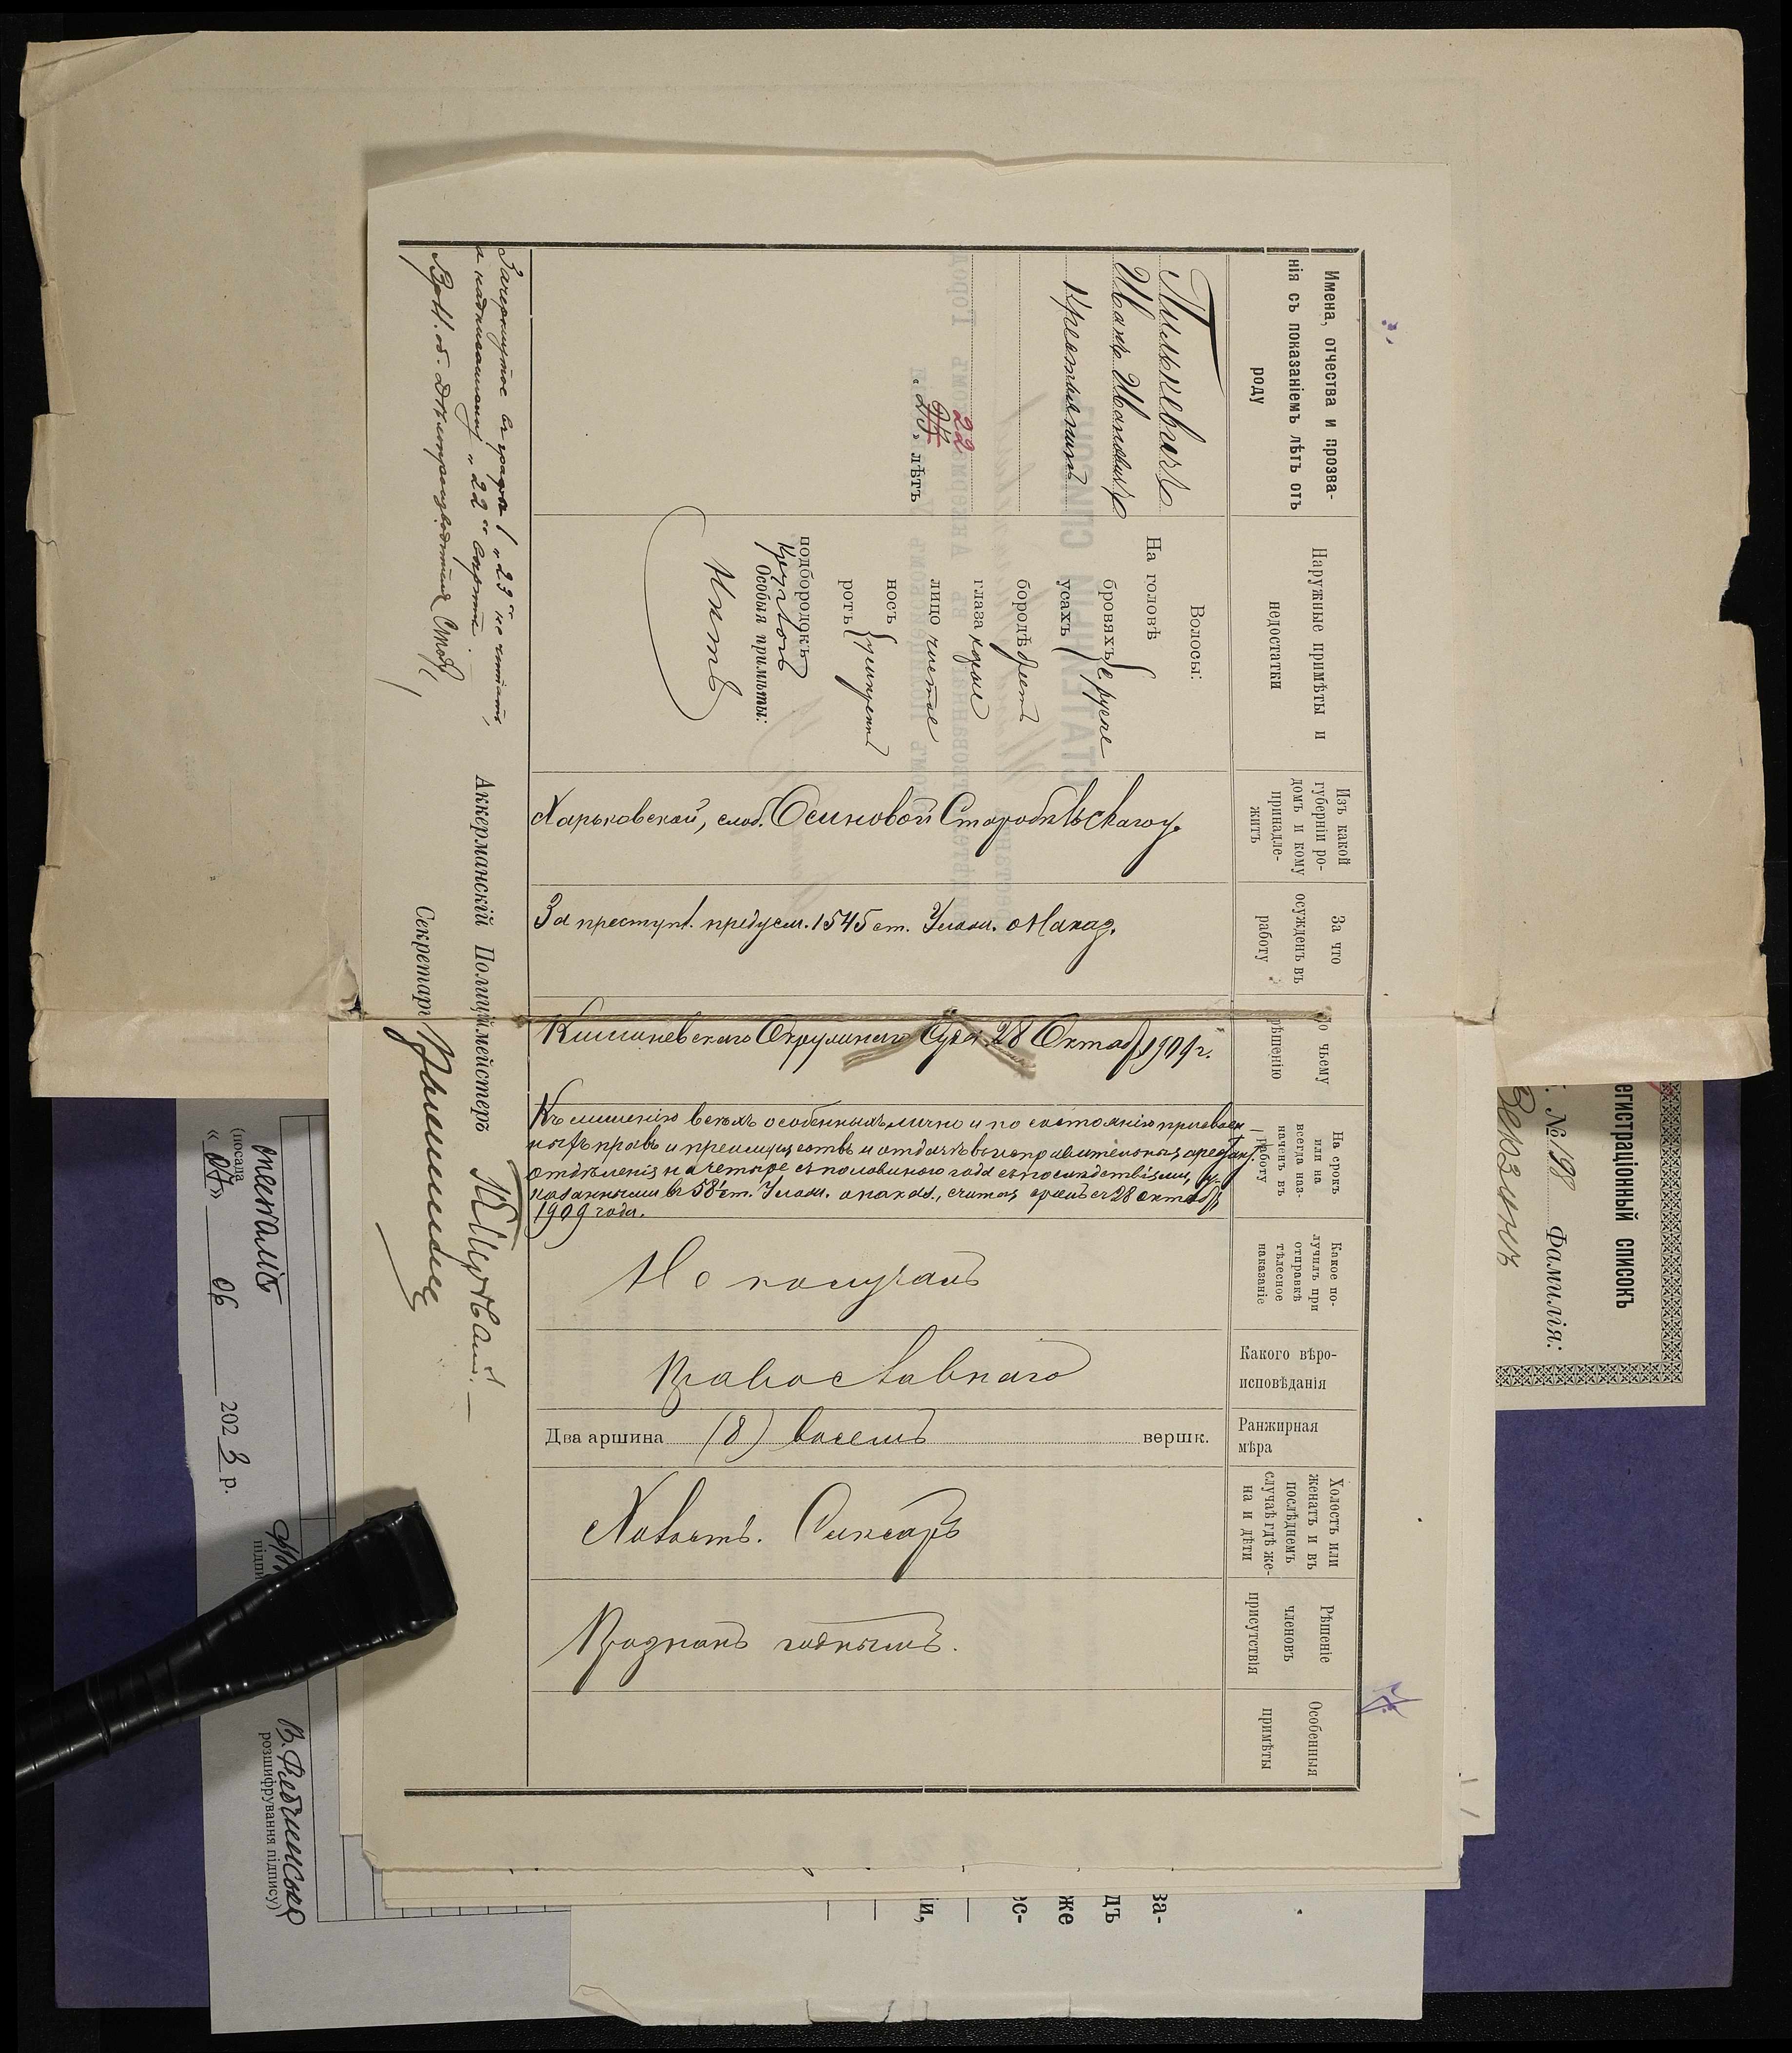 Имена, отчества и прозва-
нія съ показаніемъ лѣтъ отъ
роду
Пилькевичъ
Иванъ Ивановичъ
Крестьянинъ
22
23
лѣтъ
Наружные примѣты и
недостатки
Волосы:
На головѣ
бровяхъ русые
усахъ
бородѣ брѣетъ
глаза каріе
лицо чистое
носъ
ротъ умѣрен
подбородокъ
круглый
Особыя примѣты:
Нѣтъ
Изъ какой
губерніи ро-
домъ и кому
принадле-
житъ
Харьковской, слоб. Осиновой Старобѣльскаго у.
За что
осужденъ въ
работу
За преступл. предусм. 1545 ст. Улож. о Наказ.
По чьему
рѣшенію
Кишиневскаго Окружнаго Суда 28 Октяб. 1909 г.
На срокъ
или на
всегда наз-
наченъ въ
работу
Къ лишенію всѣхъ особенныхъ лично и по состоянію присвоен-
ныхъ правъ и преимуществъ и отдачѣ въ исправительныя арестант.
отдѣленія на четыре съ половиною года съ послѣдствіями, у-
казанными въ 58 ст. Улож. о наказ., считая срокъ съ 28 октяб.
1909 года.
Какое по-
лучилъ при
отправкѣ
тѣлесное
наказаніе
Не получалъ
Какого вѣро-
исповѣданія
Православнаго
Ранжирная
мѣра
Два аршина (8) восемь вершк.
Холостъ или
женатъ и въ
послѣднемъ
случаѣ гдѣ же-
на и дѣти
Холостъ. Слесарь
Рѣшеніе
членовъ
присутствія
Признанъ годнымъ.
Особенныя
примѣты
Зачеркнутое въ графѣ 1 „23“ не читать,
а надписанному „22“ вѣрить.
Аккерманскій Полицмейстеръ
Секретарь
егистраціонный списокъ
№ 198 Фамилія:
(посада
« 07 » 06 202 3 р.
розшифрування підпису)
ва-
дъ
же
ес-
іи,